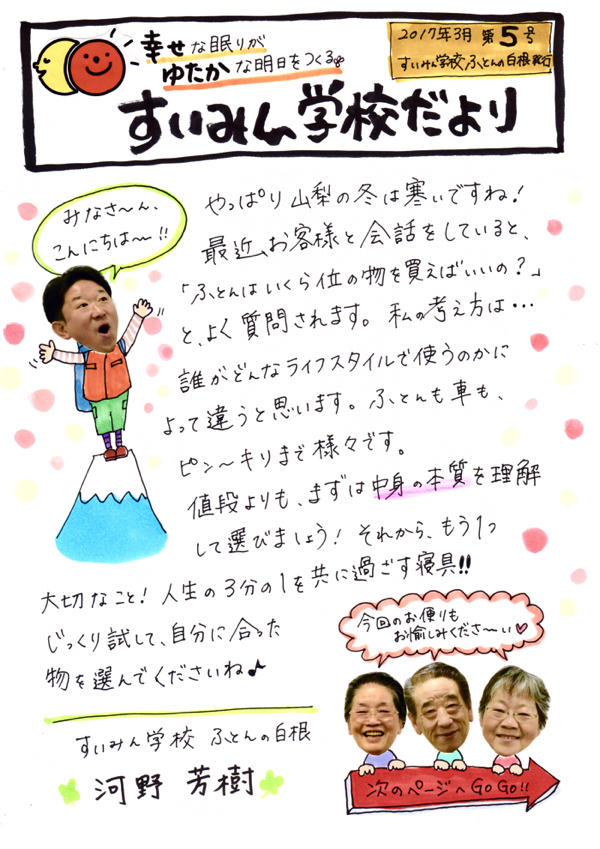 幸せな眠りが
ゆたかな明日をつくる。
2017年3月 第5号
すいみん学校ふとんの白根発行
すいみん学校だより
みなさ〜ん、
こんにちは〜!!
やっぱり山梨の冬は寒いですね!
最近、お客様と会話をしていると、
「ふとんはいくら位の物を買えばいいの?」
と、よく質問されます。私の考え方は…
誰がどんなライフスタイルで使うのかに
よって違うと思います。ふとんも車も、
ピン〜キリまで様々です。
値段よりも、まずは中身の本質を理解
して選びましょう! それから、もう1つ
大切なこと! 人生の3分の1を共に過ごす寝具!!
じっくり試して、自分に合った
物を選んでくださいね♪
すいみん学校 ふとんの白根
河野 芳樹
今回のお便りも
お愉しみくださ〜い♡
次のページへGoGo!!